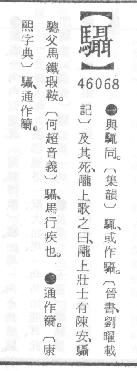 【䯀】
46068
㊀與同。〔集韻〕、或作䯀。〔晉書、劉曜載
記〕及其死、隴上歌之曰、隴上壯士有陳安、䯀
驄父馬鐵瑕鞍。〔何超音義〕䯀、馬行疾也。㊁通作籋。〔康
熙字典〕䯀、通作籋。